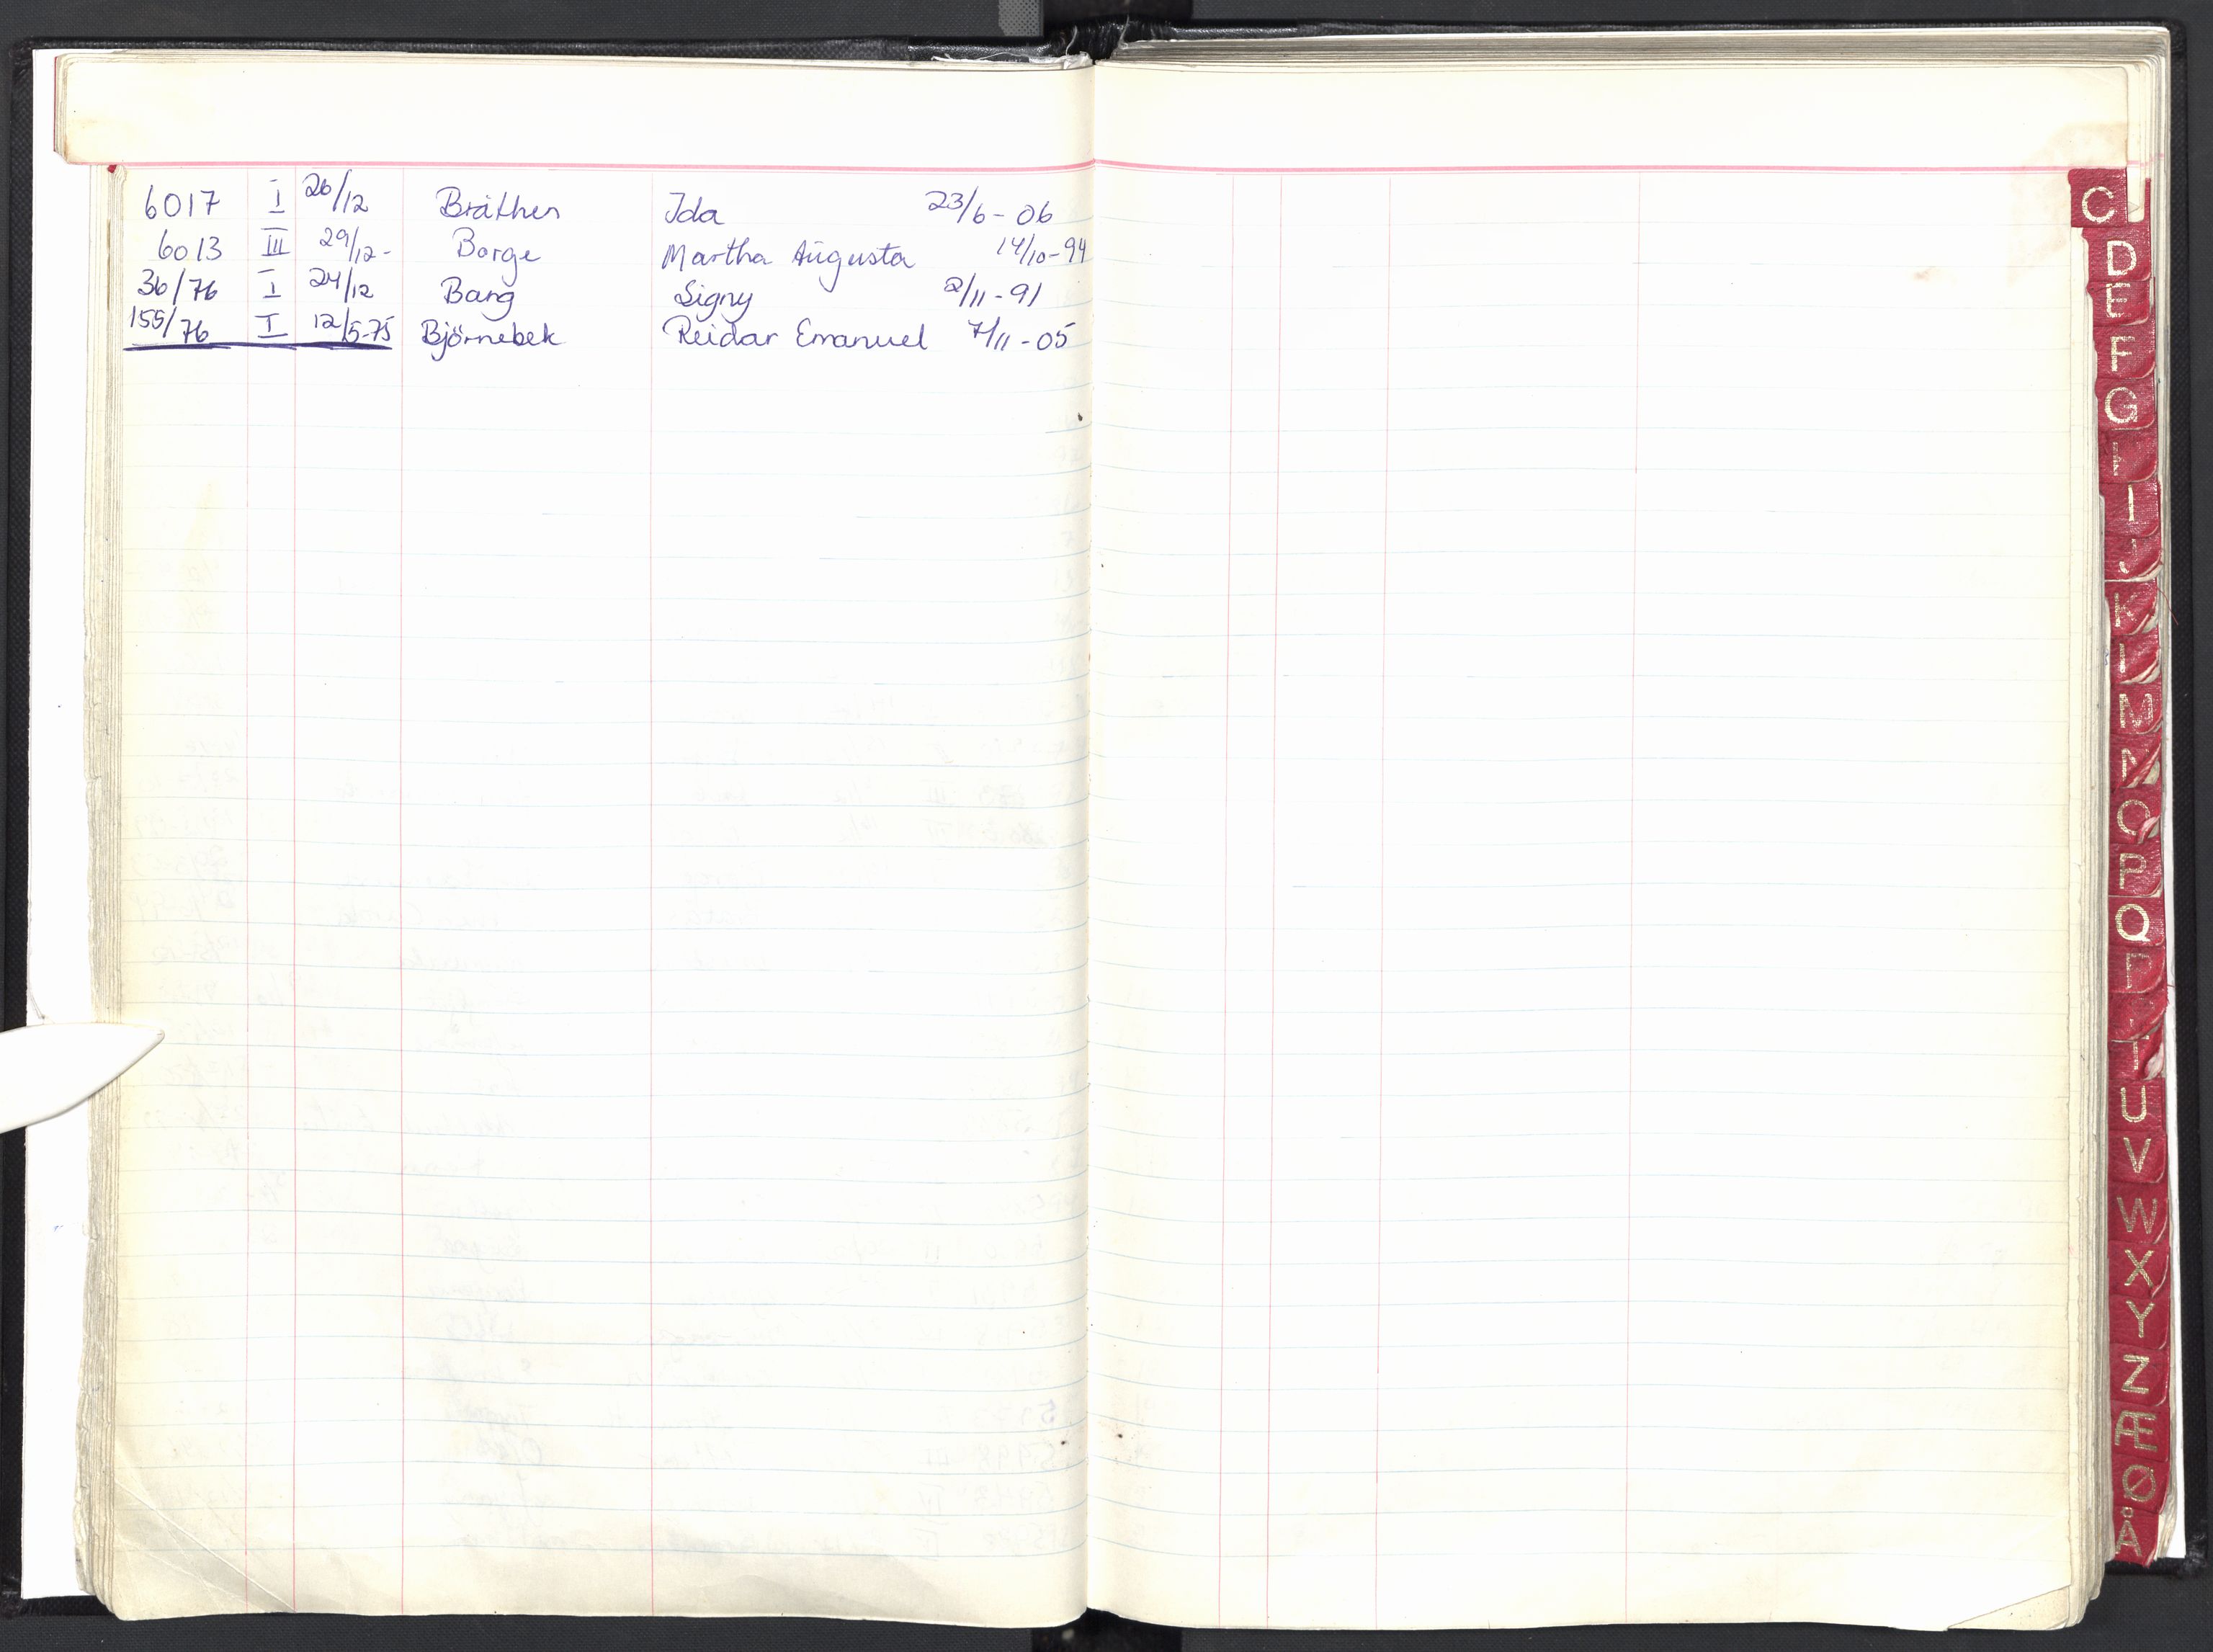 6017 I 26/12 Bråthen Ida 23/6 - 06
6013 III 29/12 - Borge Martha Augusta 14/10 - 94
36/76 I 24/12 Bang Signy 2/11 - 91
155/76 I 12/5-75 Björnebek Reidar Emanuel 7/11 - 05
C
D
E
F
G
I
J
K
M
N
O
P
Q
T
U
V
W
X
Y
Z
Æ
Ø
Å